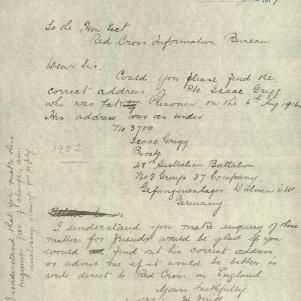 To the Hon Sect
Red Cross Information Bureau
Dear Sir.
Could you please find the
correct address of Pte Isaac Grigg
who was taken Prisoner on the 6th Aug 1916
His address was as under
No 3700
Isaac Grigg
Private
48th Australian Battalion
No 3 Groups 37 Company
Gefangenenlager Dülmen i W
Germany
1952
I understand you make enquiry of these
matter for friends would be glad if you
would find out his correct address
or advise me if it would be better to
write direct to Red Cross in England
Yours Faithfully
I understand that you make these
enquiries free of charge, am